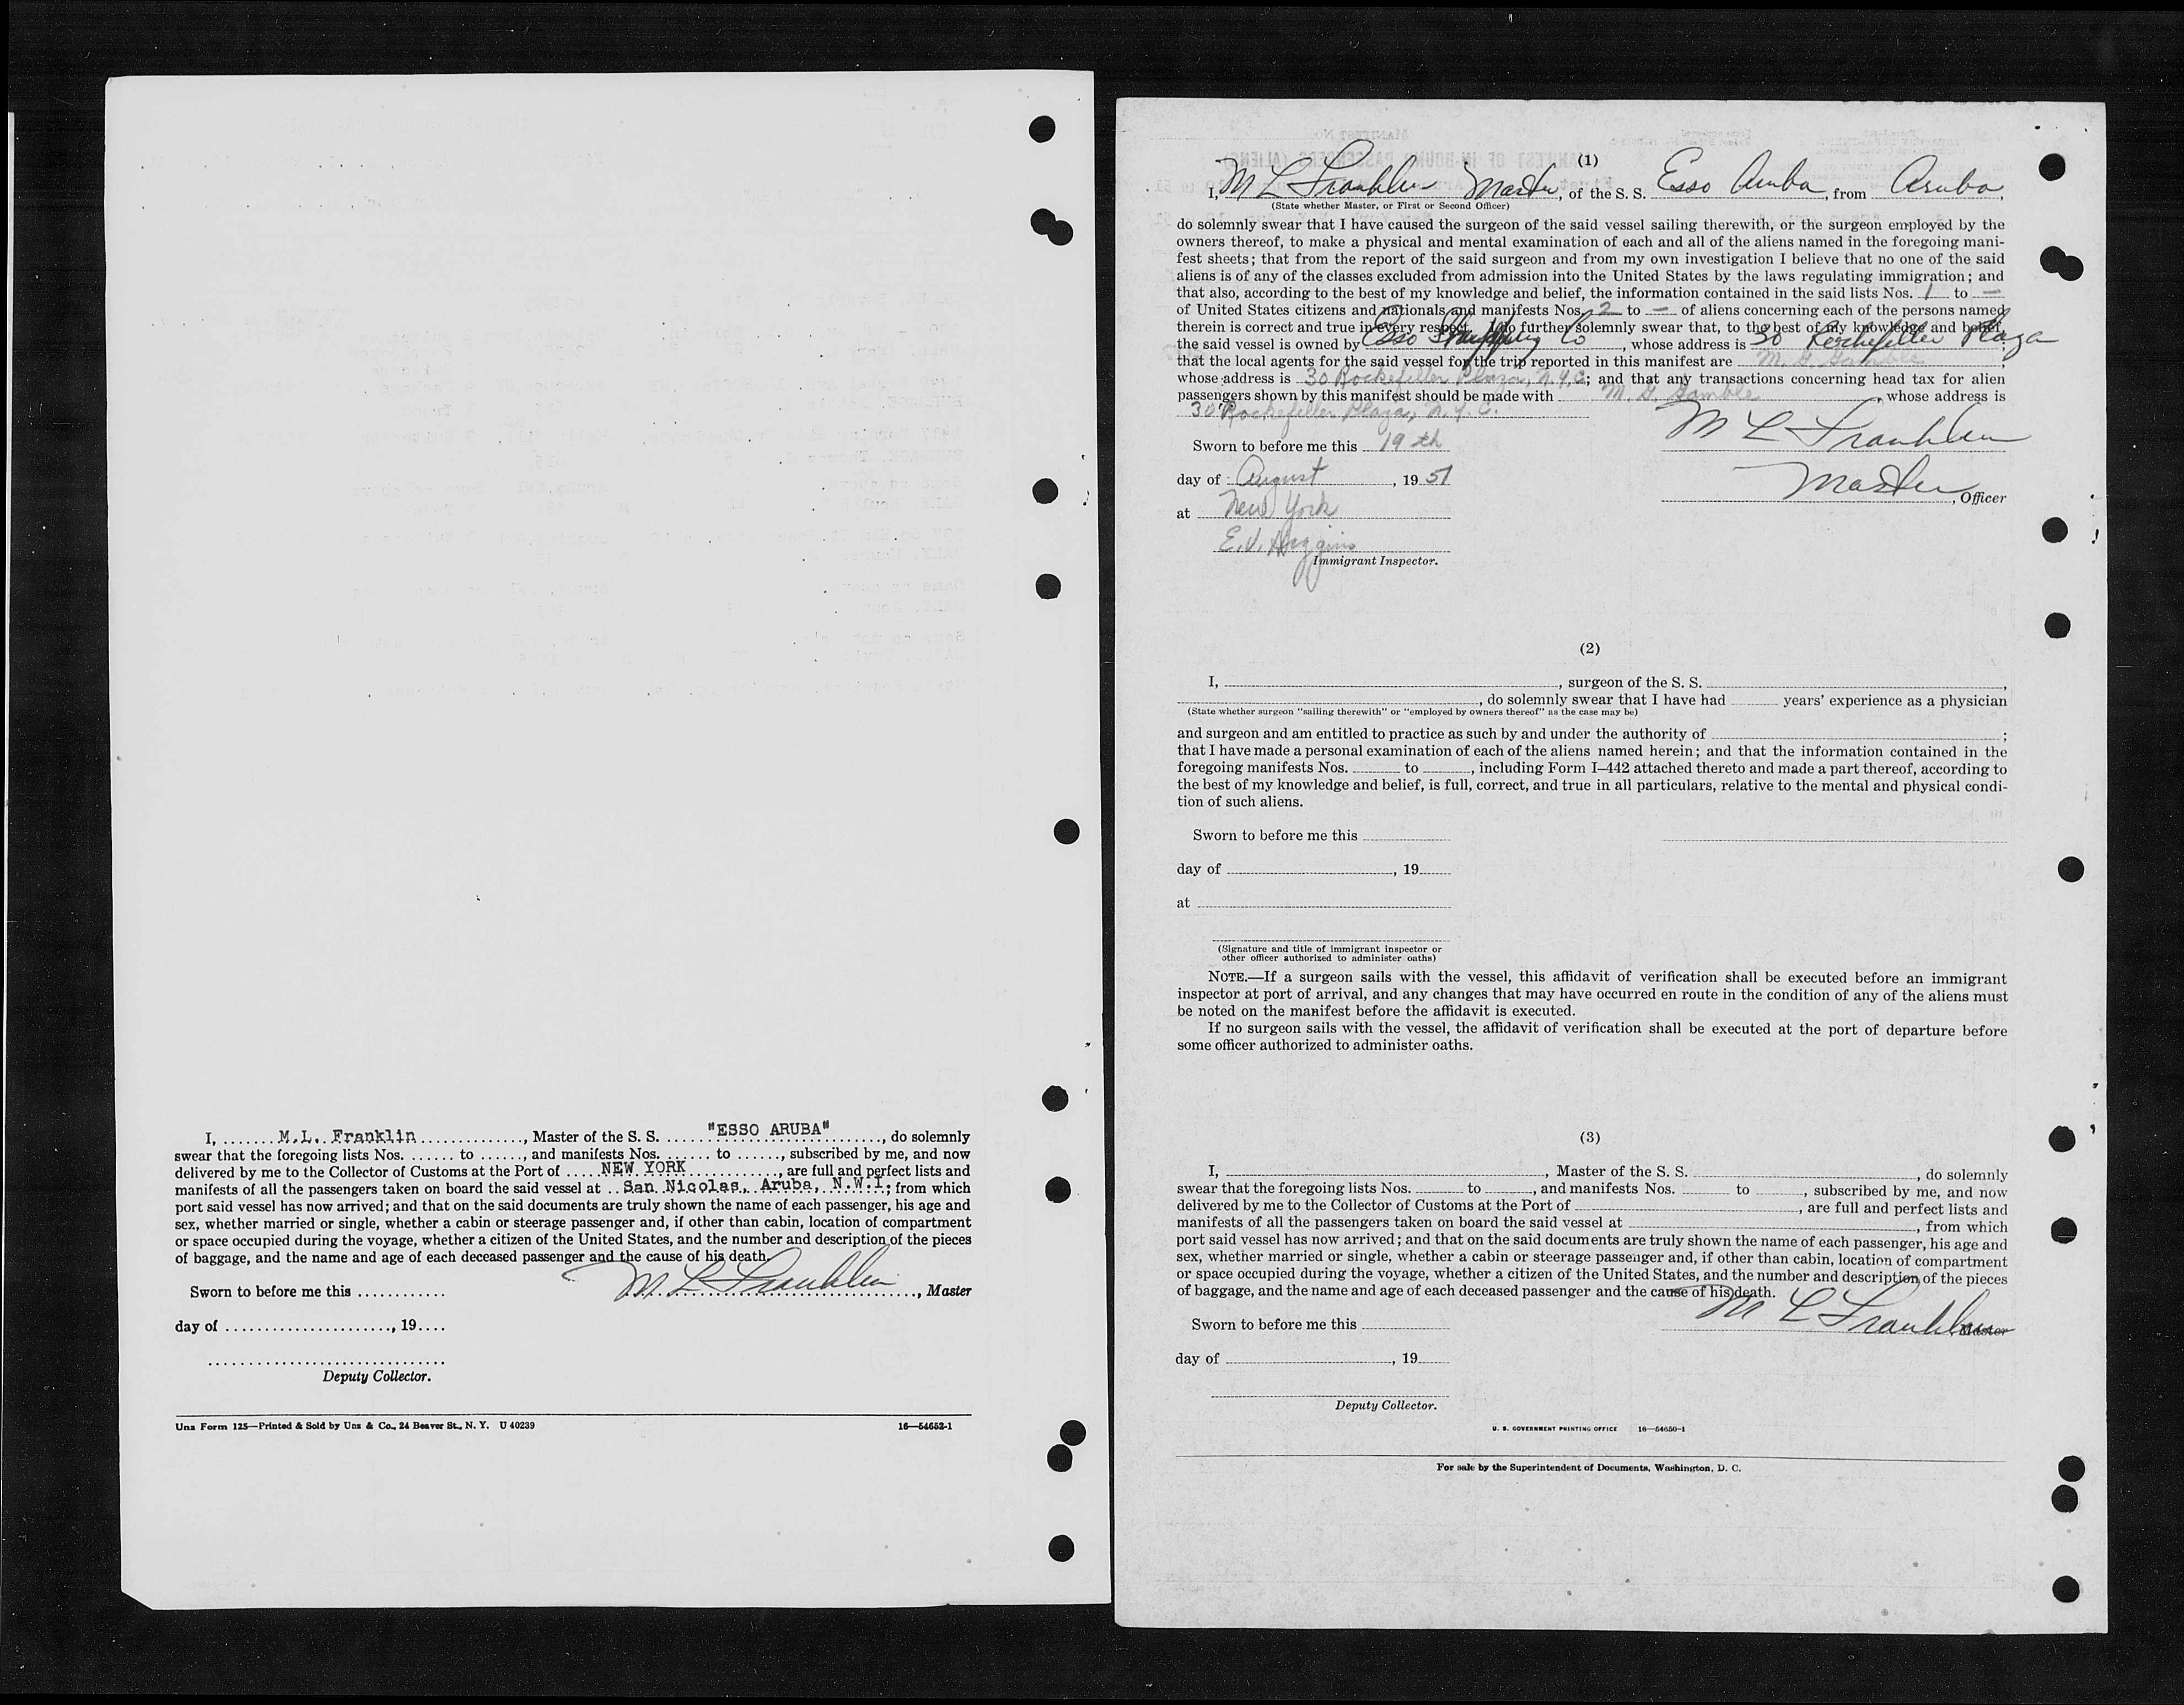 I, ....... M.L. Franklin .............., Master of the S. S. ...... "ESSO ARUBA" ........, do solemnly
swear that the foregoing lists Nos. ....... to ......, and manifests Nos. ....... to ......, subscribed by me, and now
delivered by me to the Collector of Customs at the Port of ..... NEW YORK ............, are full and perfect lists and
manifests of all the passengers taken on board the said vessel at .. San Nicolas, Aruba, N.W.I.; from which
port said vessel has now arrived; and that on the said documents are truly shown the name of each passenger, his age and
sex, whether married or single, whether a cabin or steerage passenger and, if other than cabin, location of compartment
or space occupied during the voyage, whether a citizen of the United States, and the number and description of the pieces
of baggage, and the name and age of each deceased passenger and the cause of his death.
M L Franklin
Sworn to before me this ............ , Master
day of ......................, 19....
Deputy Collector.
Unz Form 125—Printed & Sold by Unz & Co., 24 Beaver St., N. Y. U 40239 16—54652-1
(1)
I, M L Franklin Master, of the S. S. Esso Aruba, from Aruba,
(State whether Master, or First or Second Officer)
do solemnly swear that I have caused the surgeon of the said vessel sailing therewith, or the surgeon employed by the
owners thereof, to make a physical and mental examination of each and all of the aliens named in the foregoing mani-
fest sheets; that from the report of the said surgeon and from my own investigation I believe that no one of the said
aliens is of any of the classes excluded from admission into the United States by the laws regulating immigration; and
that also, according to the best of my knowledge and belief, the information contained in the said lists Nos. 1 to —
of United States citizens and nationals and manifests Nos. 2 to — of aliens concerning each of the persons named
therein is correct and true in every respect. I do further solemnly swear that, to the best of my knowledge and belief,
the said vessel is owned by Esso Shipping Co, whose address is 30 Rockefeller Plaza
that the local agents for the said vessel for the trip reported in this manifest are M. G. Gamble,
whose address is 30 Rockefeller Plaza, N.Y.C.; and that any transactions concerning head tax for alien
passengers shown by this manifest should be made with M. G. Gamble, whose address is
30 Rockefeller Plaza, N. Y. C.
M L Franklin
Sworn to before me this 19 th
day of August, 19 51
Master, Officer
at New York
E. V. Higgins
Immigrant Inspector.
(2)
I, , surgeon of the S. S. ,
, do solemnly swear that I have had years' experience as a physician
(State whether surgeon "sailing therewith" or "employed by owners thereof" as the case may be)
and surgeon and am entitled to practice as such by and under the authority of ;
that I have made a personal examination of each of the aliens named herein; and that the information contained in the
foregoing manifests Nos. to , including Form I–442 attached thereto and made a part thereof, according to
the best of my knowledge and belief, is full, correct, and true in all particulars, relative to the mental and physical condi-
tion of such aliens.
Sworn to before me this
day of , 19
at
(Signature and title of immigrant inspector or
other officer authorized to administer oaths)
NOTE.—If a surgeon sails with the vessel, this affidavit of verification shall be executed before an immigrant
inspector at port of arrival, and any changes that may have occurred en route in the condition of any of the aliens must
be noted on the manifest before the affidavit is executed.
If no surgeon sails with the vessel, the affidavit of verification shall be executed at the port of departure before
some officer authorized to administer oaths.
(3)
I, , Master of the S. S. , do solemnly
swear that the foregoing lists Nos. to , and manifests Nos. to , subscribed by me, and now
delivered by me to the Collector of Customs at the Port of , are full and perfect lists and
manifests of all the passengers taken on board the said vessel at , from which
port said vessel has now arrived; and that on the said documents are truly shown the name of each passenger, his age and
sex, whether married or single, whether a cabin or steerage passenger and, if other than cabin, location of compartment
or space occupied during the voyage, whether a citizen of the United States, and the number and description of the pieces
of baggage, and the name and age of each deceased passenger and the cause of his death.
M L Franklin
Sworn to before me this Master
day of , 19
Deputy Collector.
U. S. GOVERNMENT PRINTING OFFICE 16—54650-1
For sale by the Superintendent of Documents, Washington, D. C.